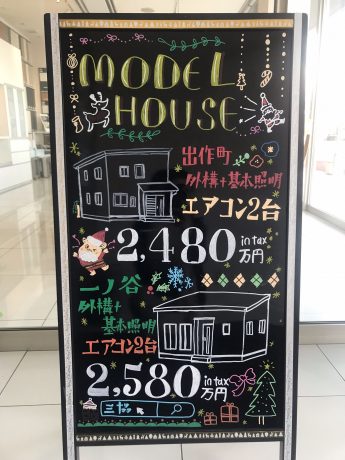 MODEL
HOUSE
出作町
外構+基本照明
エアコン2台
2,480 in tax 万円
一ノ谷
外構+
基本照明
エアコン2台
2,580 in tax 万円
三協